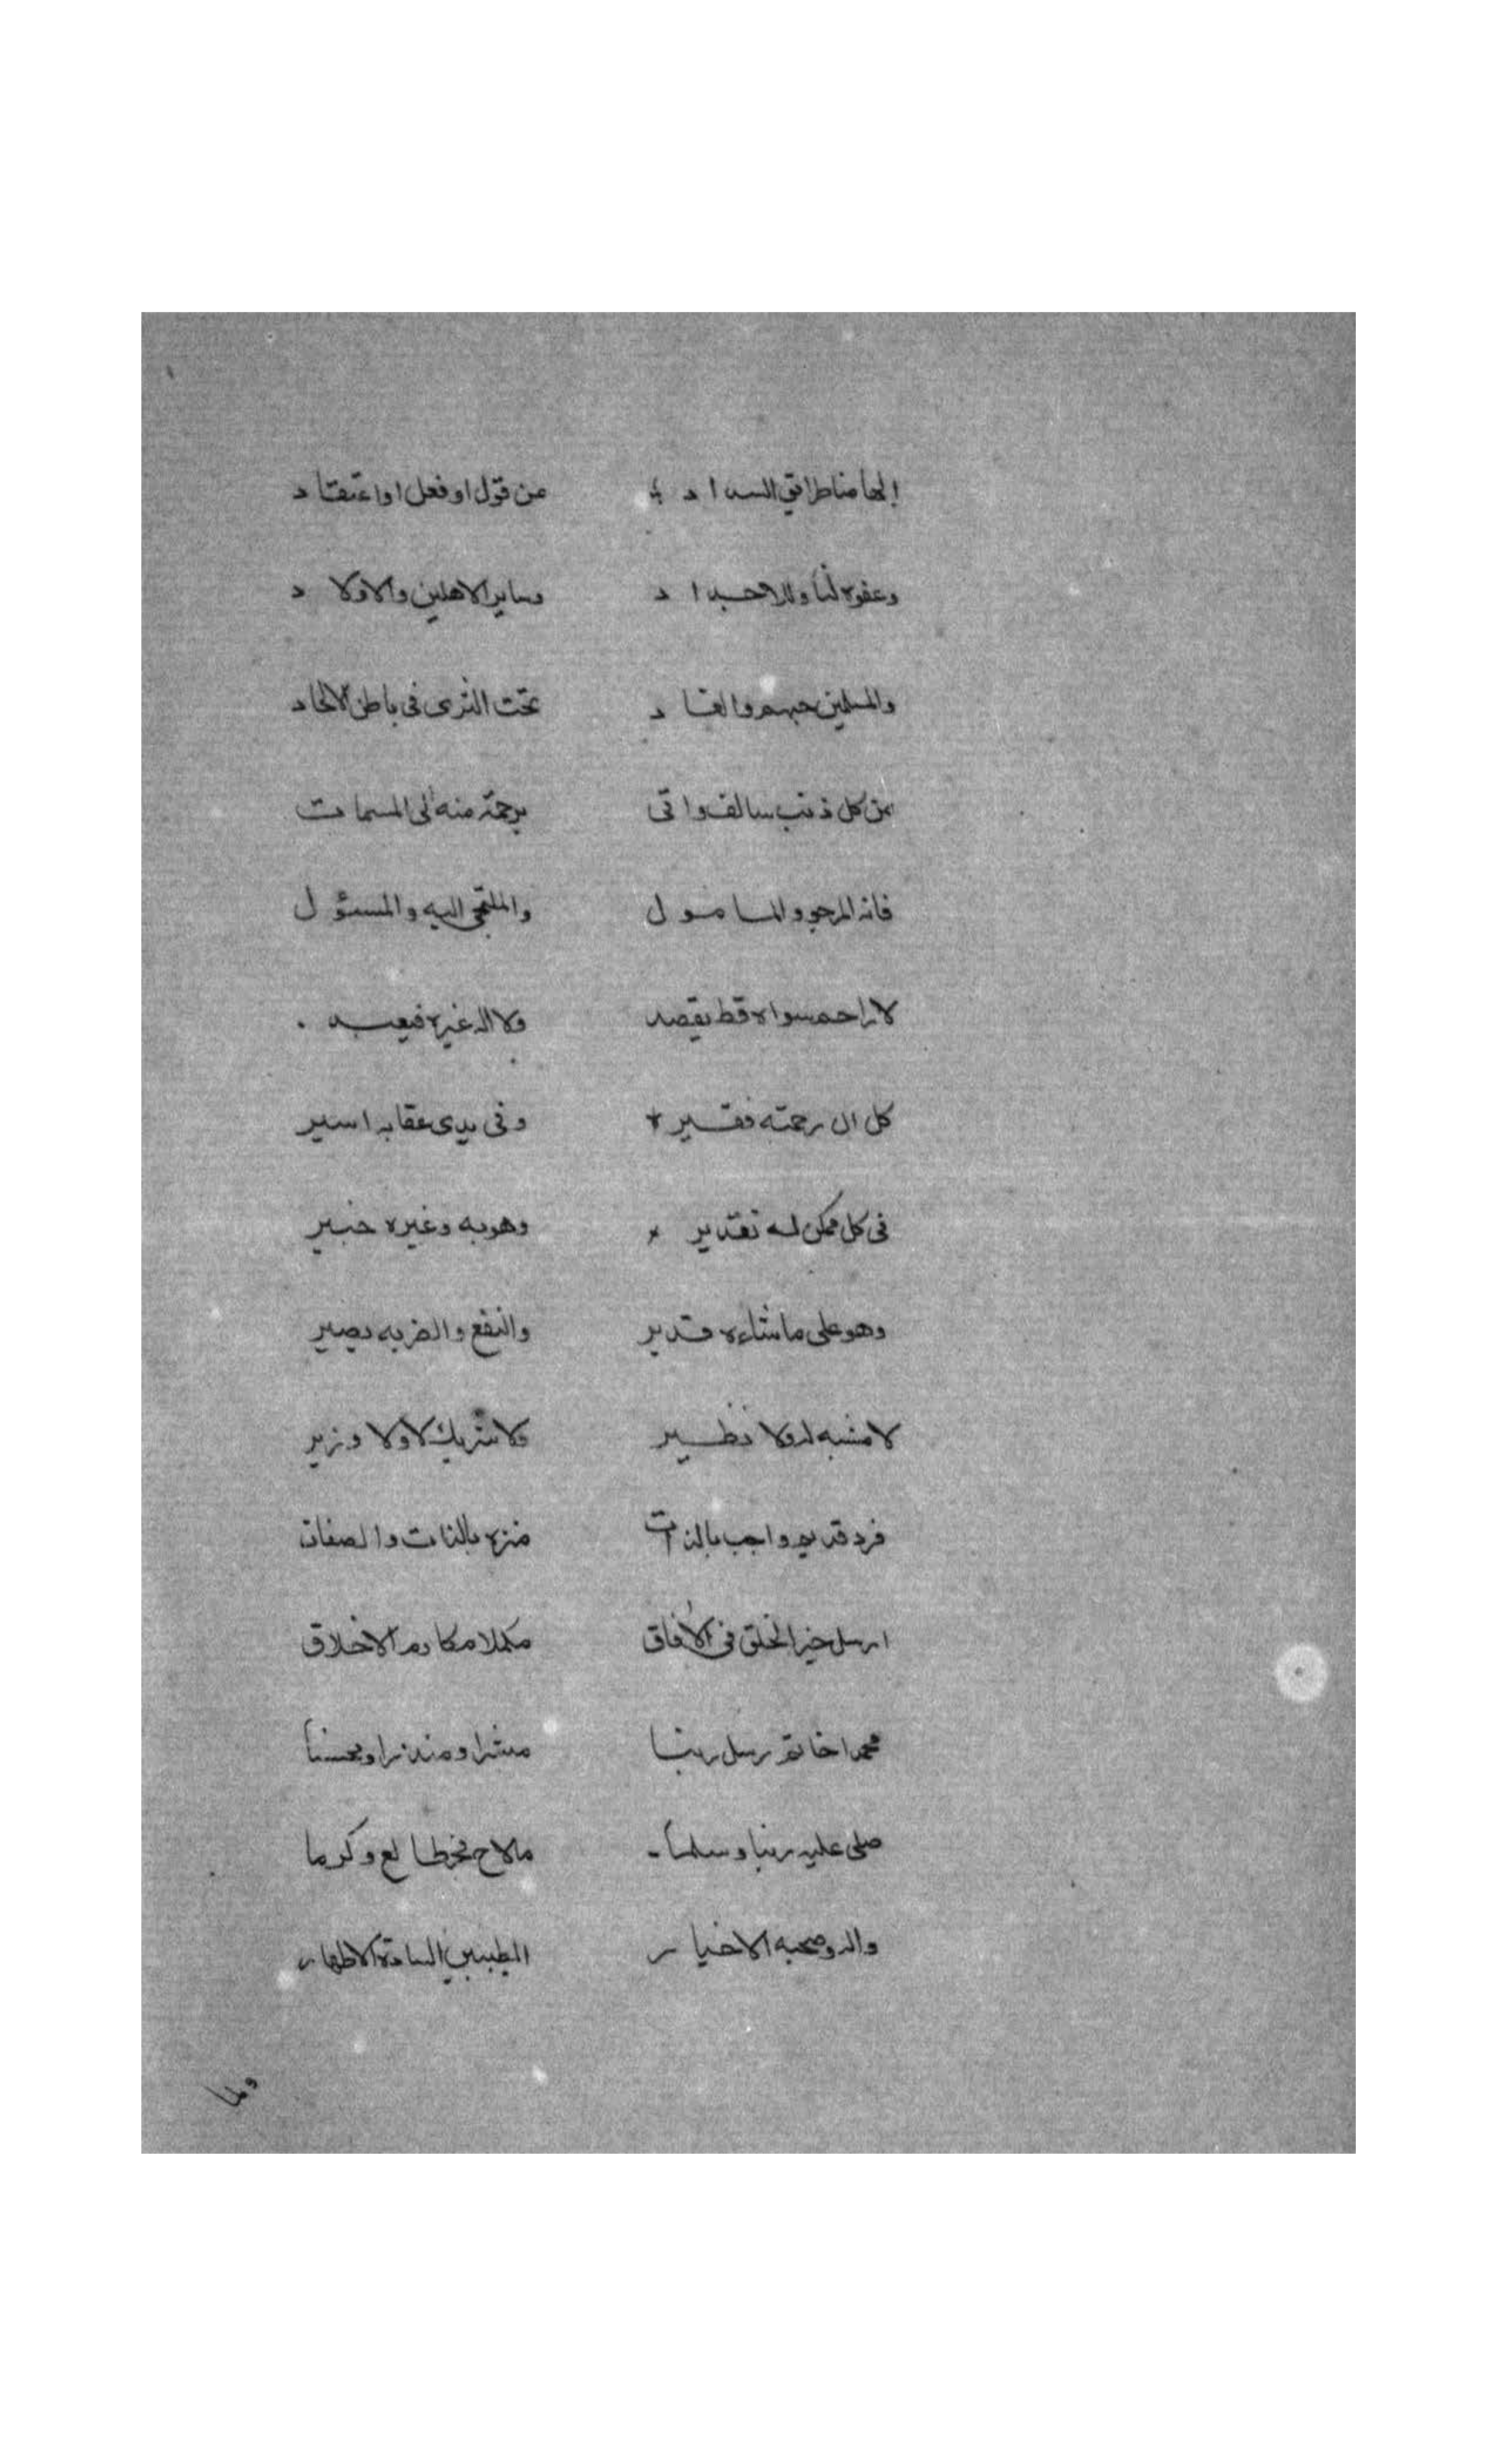 إلهامنا طرائق السداد من قول او فعل او اعتقاد
وعفوه لنا وللاجداد وساير الاهلين والاولاد
والمسلمين تحت الثرى فى باطن الالحاد
من كل ذنب سالف واتى برحمة منه الى الممات
فانه المرجو والمامول والملتجى اليه والمسئول
لا راحم سواه قط يقصد ولا اله غيره فيعبد
كل الى رحمته فقير وفى يدى عقابه اسير
فى كل ممكن له تقدير وهو به وغيره خبير
وهو على ما شاءه قدير والنفع والضر به يصير
لا مشبه له ولا نظير ولا شريك لا ولا وزير
فرد قديم واجب بالذات منزه بالذات والصفات
ارسل خير الخلق فى الافاق مكملا مكارم الاخلاق
محمدا خاتم رسل ربنا مبشرا ومنذرا ومحسنا
صلى عليه ربنا وسلما ما لاح نجم طالع وكرما
واله وصحبه الاخيار الطيبين السادة الاطهار
ولما